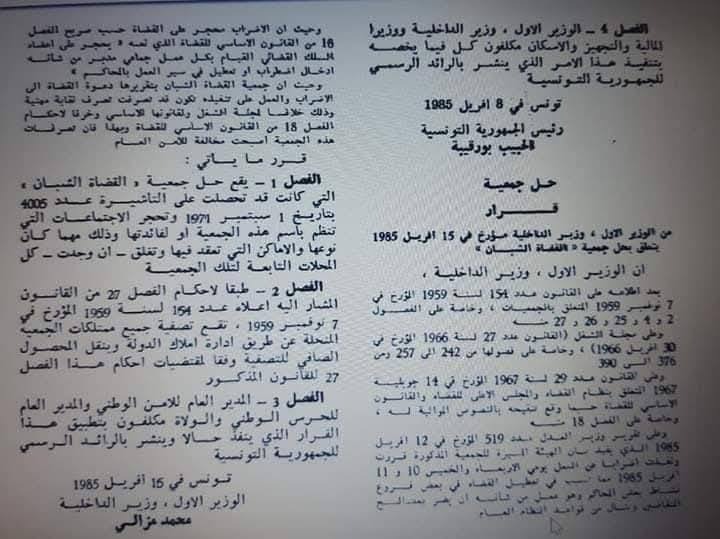 الفصل 4 – الوزير الاول ، وزير الداخلية ووزيرا
المالية والتجهيز والاسكان مكلفون كل فيما يخصه
بتنفيذ هذا الامر الذي ينشر بالرائد الرسمي
للجمهورية التونسية
تونس في 8 افريل 1985
رئيس الجمهورية التونسية
الحبيب بورقيبة
حل جمعية
قرار
من الوزير الاول ، وزير الداخلية مؤرخ في 15 افريل 1985
يتعلق بحل جمعية « القضاة الشبان »
ان الوزير الاول ، وزير الداخلية ،
بعد اطلاعه على القانون عدد 154 لسنة 1959 المؤرخ في
7 نوفمبر 1959 المتعلق بالجمعيات ، وخاصة على الفصول
2 و 4 و 25 و 26 و 27 منه
وعلى مجلة الشغل (القانون عدد 27 لسنة 1966 المؤرخ في
30 افريل 1966) ، وخاصة على فصولها من 242 الى 257 ومن
376 الى 390
وعلى القانون عدد 29 لسنة 1967 المؤرخ في 14 جويلية
1967 المتعلق بنظام القضاء والمجلس الاعلى للقضاء والقانون
الاساسي للقضاة حسبما وقع تنقيحه بالنصوص الموالية له ،
وخاصة على الفصل 18 منه
وعلى تقرير وزير العدل عدد 519 المؤرخ في 12 افريل
1985 الذي يفيد بان الهيئة المديرة للجمعية المذكورة قررت
ونفذت اضرابا عن العمل يومي الاربعاء والخميس 10 و 11
افريل 1985 مما تسبب في تعطيل القضاء في بعض فروع
نشاط بعض المحاكم وهو عمل من شانه ان يضر بمصالح
المتقاضين وينال من قواعد النظام العام
وحيث ان الاضراب محجر على القضاة حسب صريح الفصل
18 من القانون الاساسي للقضاة الذي نصه « يحجر على اعضاء
السلك القضائي القيام بكل عمل جماعي مدبر من شانه
ادخال اضطراب او تعطيل في سير العمل بالمحاكم »
وحيث ان جمعية القضاة الشبان بتقريرها دعوة القضاة الى
الاضراب والعمل على تنفيذه تكون قد تصرفت تصرف نقابة مهنية
وذلك خلافا لمجلة الشغل ولقانونها الاساسي وخرقا لاحكام
الفصل 18 من القانون الاساسي للقضاة وبهذا فان تصرفات
هذه الجمعية اصبحت مخالفة للامن العام
قرر ما ياتي :
الفصل 1 – يقع حل جمعية « القضاة الشبان »
التي كانت قد تحصلت على التاشيرة عدد 4005
بتاريخ 1 سبتمبر 1971 وتحجر الاجتماعات التي
تنظم باسم هذه الجمعية او لفائدتها وذلك مهما كان
نوعها والاماكن التي تعقد فيها وتغلق – ان وجدت – كل
المحلات التابعة لتلك الجمعية
الفصل 2 – طبقا لاحكام الفصل 27 من القانون
المشار اليه اعلاه عدد 154 لسنة 1959 المؤرخ في
7 نوفمبر 1959 ، تقع تصفية جميع ممتلكات الجمعية
المنحلة عن طريق ادارة املاك الدولة وينقل المحصول
الصافي للتصفية وفقا لمقتضيات احكام هذا الفصل
27 للقانون المذكور
الفصل 3 – المدير العام للامن الوطني والمدير العام
للحرس الوطني والولاة مكلفون بتطبيق هذا
القرار الذي ينفذ حالا وينشر بالرائد الرسمي
للجمهورية التونسية
تونس في 15 افريل 1985
الوزير الاول ، وزير الداخلية
محمد مزالي